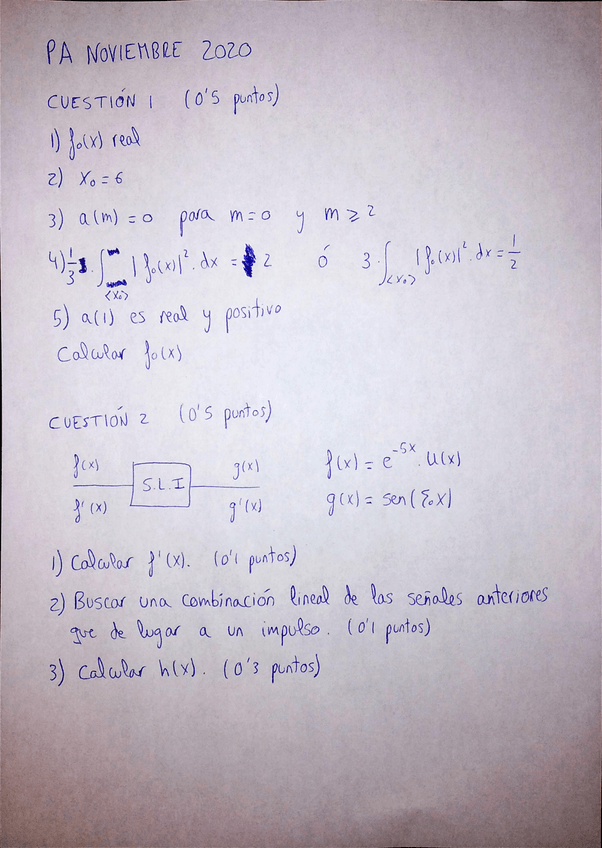 PA NOVIEMBRE 2020
CUESTIÓN 1 (0'5 puntos)
1) f₀(x) real
2) X₀ = 6
3) a(m) = 0 para m = 0 y m ⩾ 2
4) 1/3 · ∫<X₀> |f₀(x)|² · dx = 2 ó 3 · ∫<X₀> |f₀(x)|² · dx = 1/2
5) a(1) es real y positivo
Calcular f₀(x)
CUESTIÓN 2 (0'5 puntos)
f(x) S.L.I g(x) f(x) = e^-5x · u(x)
f'(x) g'(x) g(x) = sen(ξ₀x)
1) Calcular f'(x). (0'1 puntos)
2) Buscar una combinación lineal de las señales anteriores
que de lugar a un impulso. (0'1 puntos)
3) Calcular h(x). (0'3 puntos)